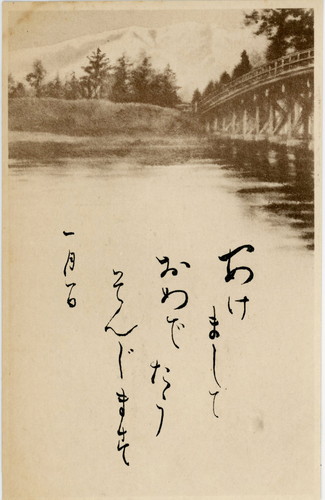 あけ
まして
おめでたう
ぞんじます
一月一日